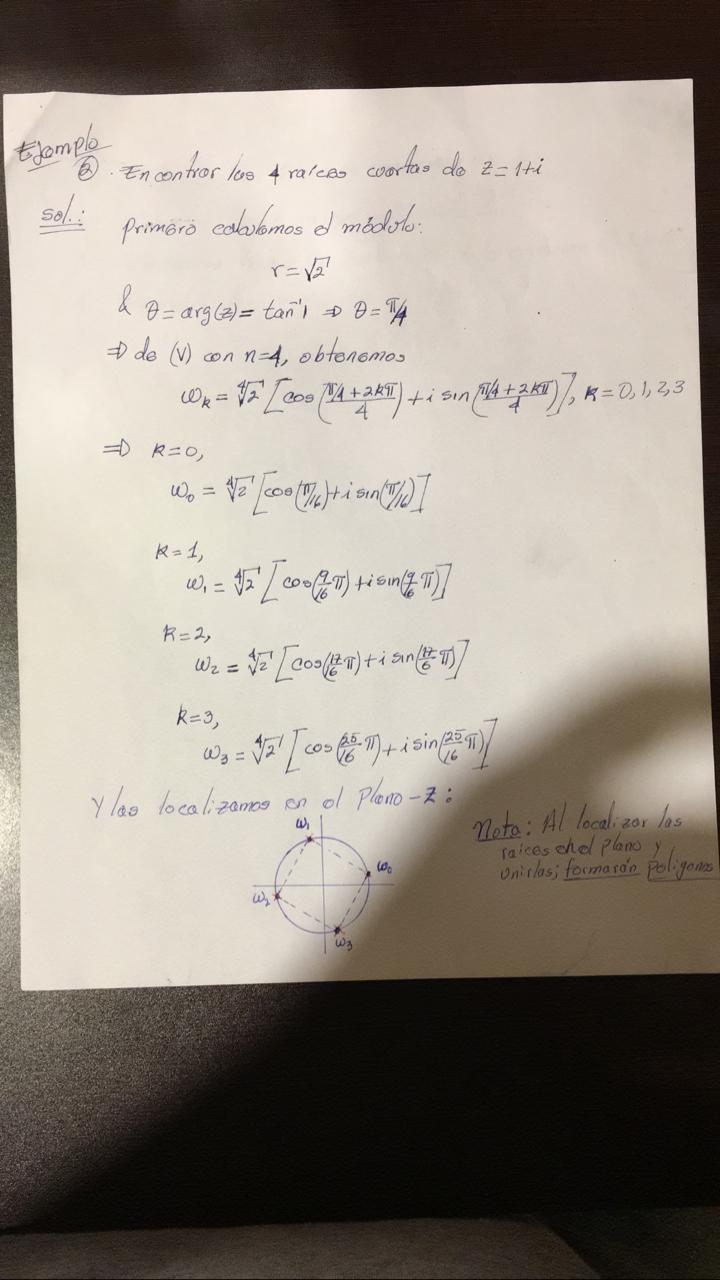 Ejemplo
②. Encontrar las 4 raíces cuartas de z=1+i
Sol.:
Primero calculamos el módulo:
r=√2
& θ=arg(z)= tan⁻¹1 ⇒ θ=π/4
⇒ de (V) con n=4, obtenemos
ωk = ∜2 [cos(π/4+2kπ/4)+i sin(π/4+2kπ/4)], k=0,1,2,3
⇒ k=0,
ω₀ = ∜2 [cos(π/16)+i sin(π/16)]
k=1,
ω₁ = ∜2 [cos(9/16 π)+i sin(9/16 π)]
k=2,
ω₂ = ∜2 [cos(17/16 π)+i sin(17/16 π)]
k=3,
ω₃ = ∜2 [cos(25/16 π)+i sin(25/16 π)]
Y las localizamos en el Plano-Z:
Nota: Al localizar las
raíces en el Plano y
unirlas; formarán Polígonos
ω₁
ω₀
ω₂
ω₃